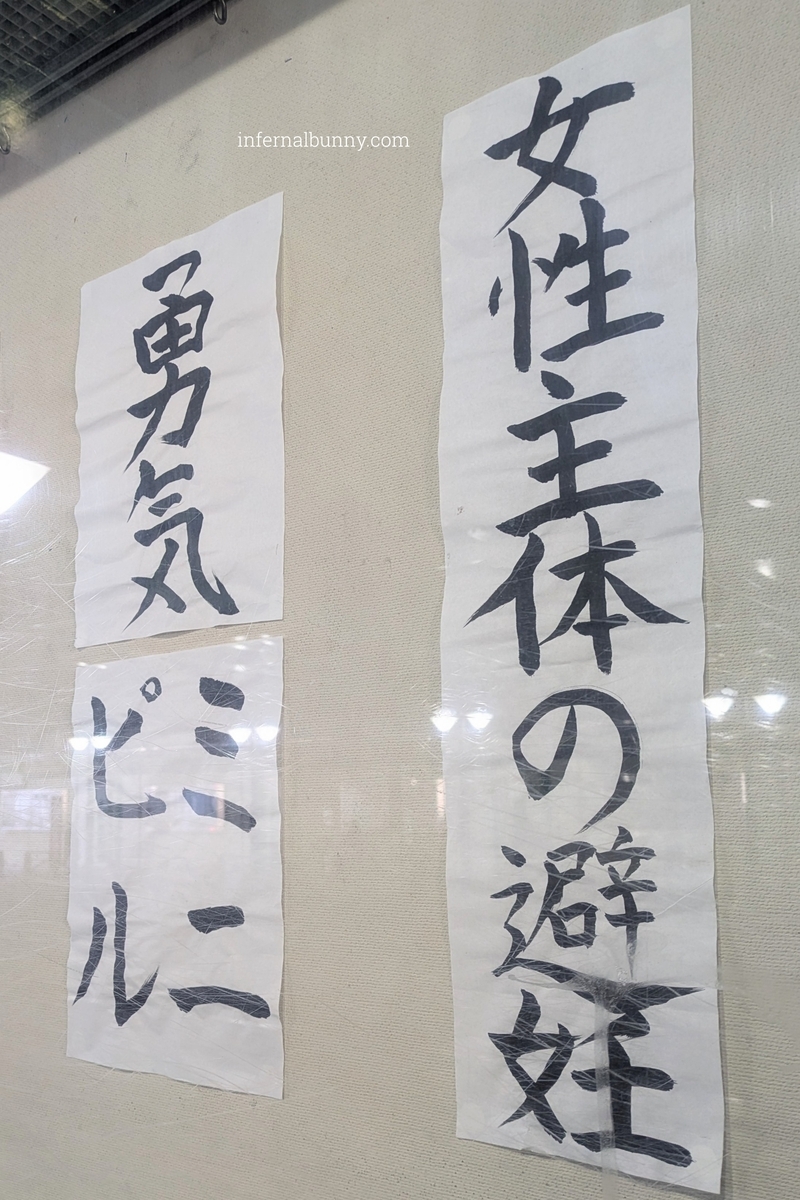 infernalbunny.com
女性主体の避妊
勇気
ミニ
ピル